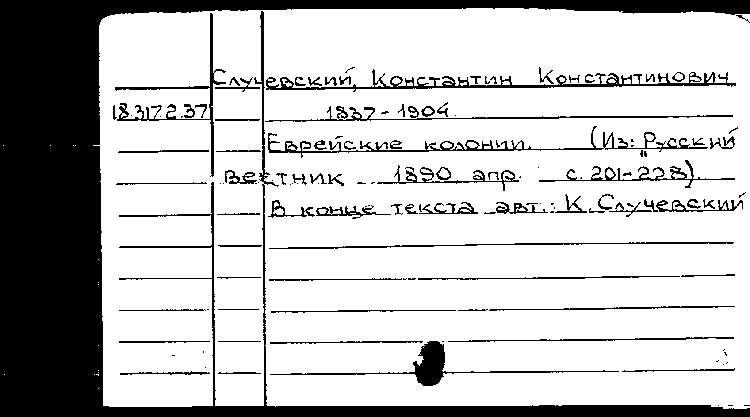 Случевский, Константин Константинович
18.317.2.37 1837-1904
Еврейские колонии. (Из: Русский
вестник 1890 апр. с. 201-228).
В конце текста авт.: К. Случевский